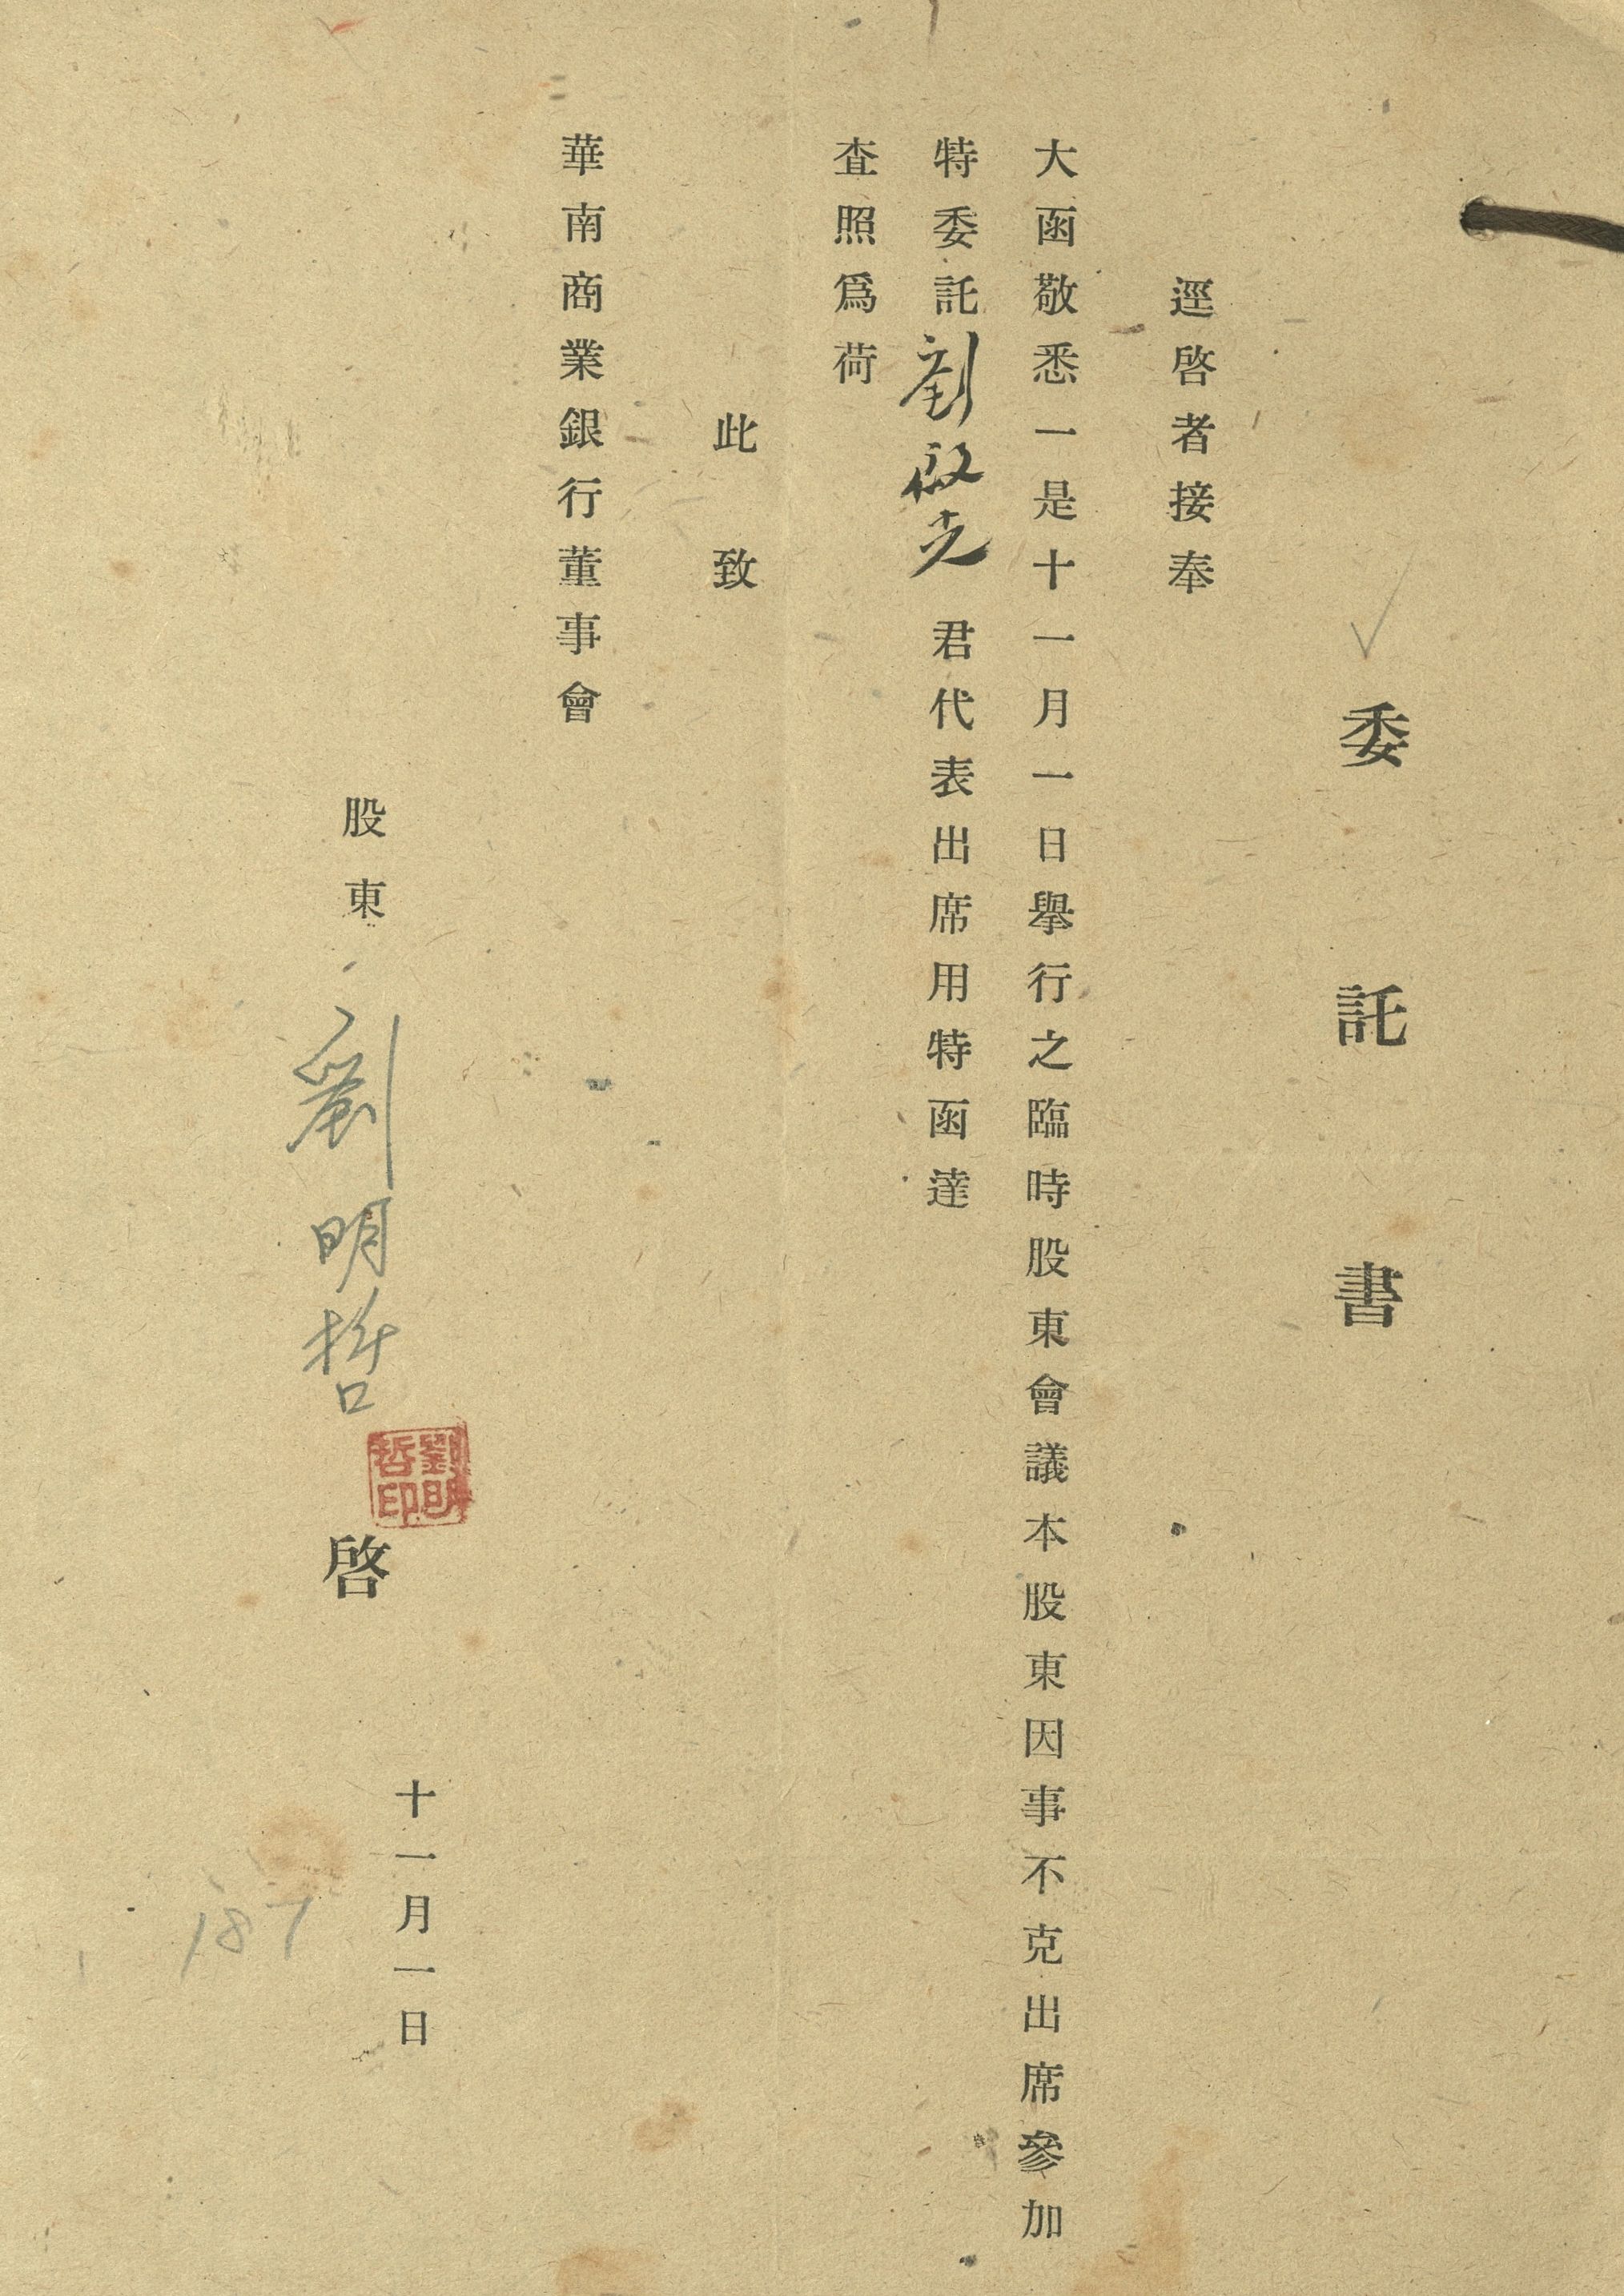 委託書
逕啓者接奉
大函敬悉一是十一月一日擧行之臨時股東會議本股東因事不克出席參加
特委託劉啟光君代表出席用特函達
査照爲荷
此致
華南商業銀行董事會
股東劉明哲啓
劉明哲印
十一月一日
187